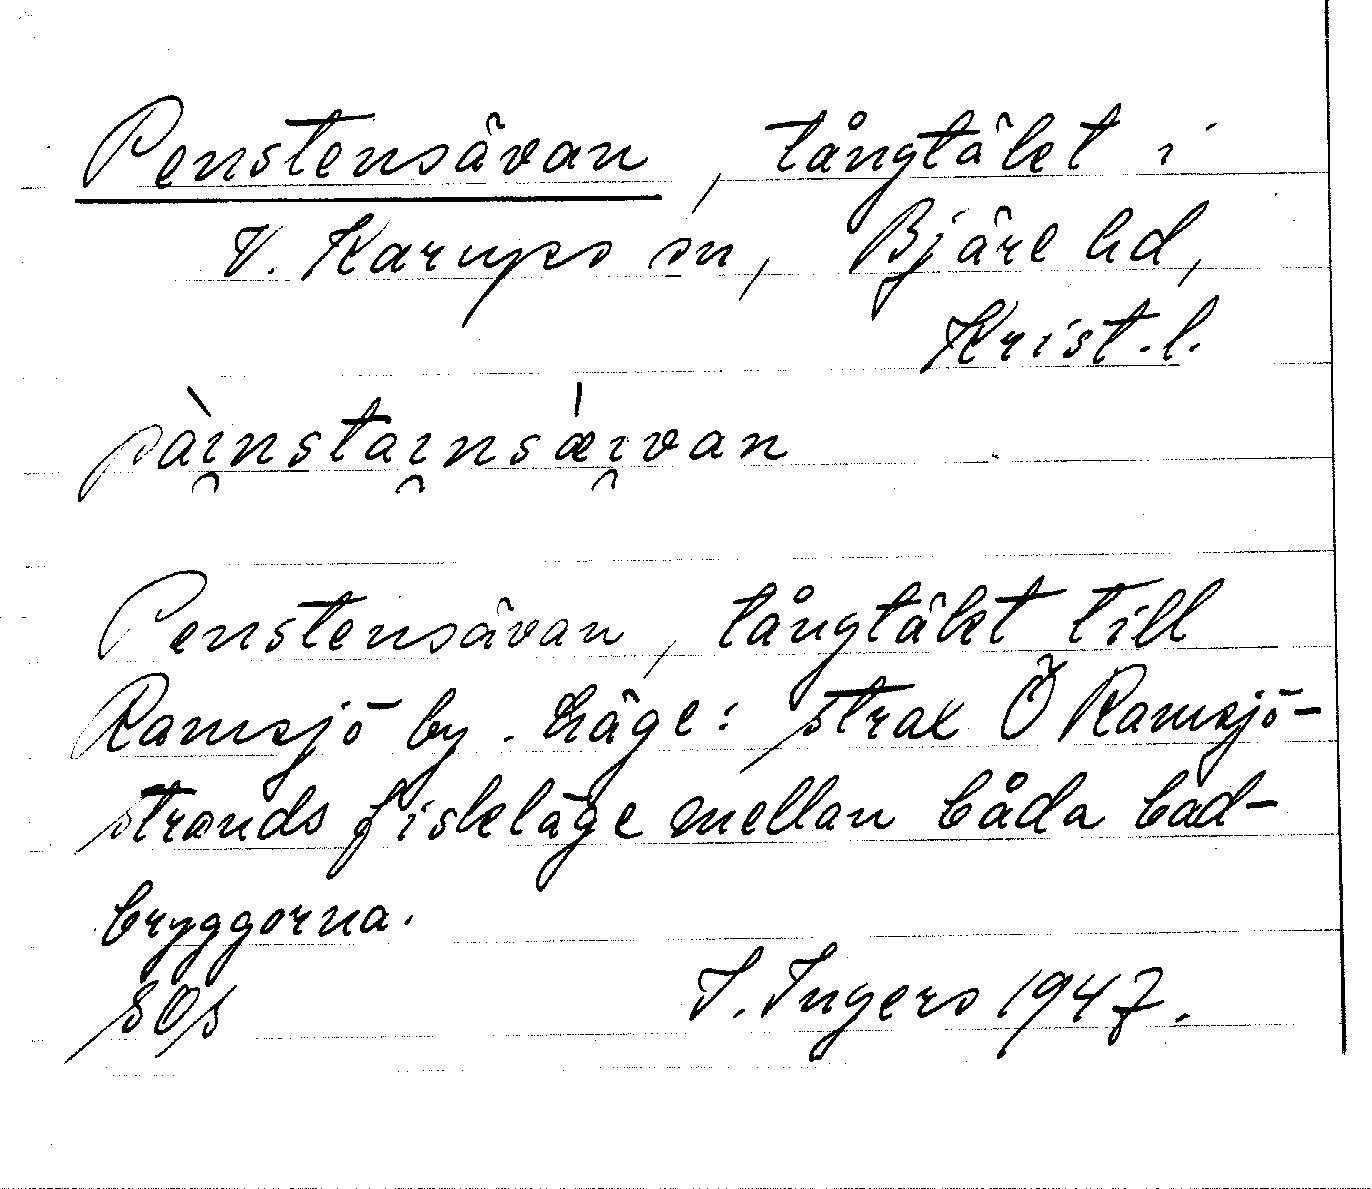 Penstensävan, tångtäkt i
V. Karups sn, Bjäre hd,
Krist. l.
pàı̯nstaı̯nsǽı̯van
Penstensävan, tångtäkt till
Ramsjö by. Läge: strax Ö Ramsjö-
strands fiskeläge mellan båda bad-
bryggorna.
SOS I. Ingers 1947.